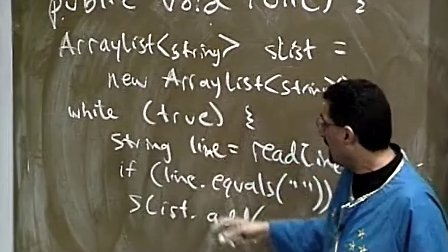 public void run() {
ArrayList<string> sList =
new ArrayList<string>
while (true) {
string line = readLine
if (line.equals(""))
sList. add(